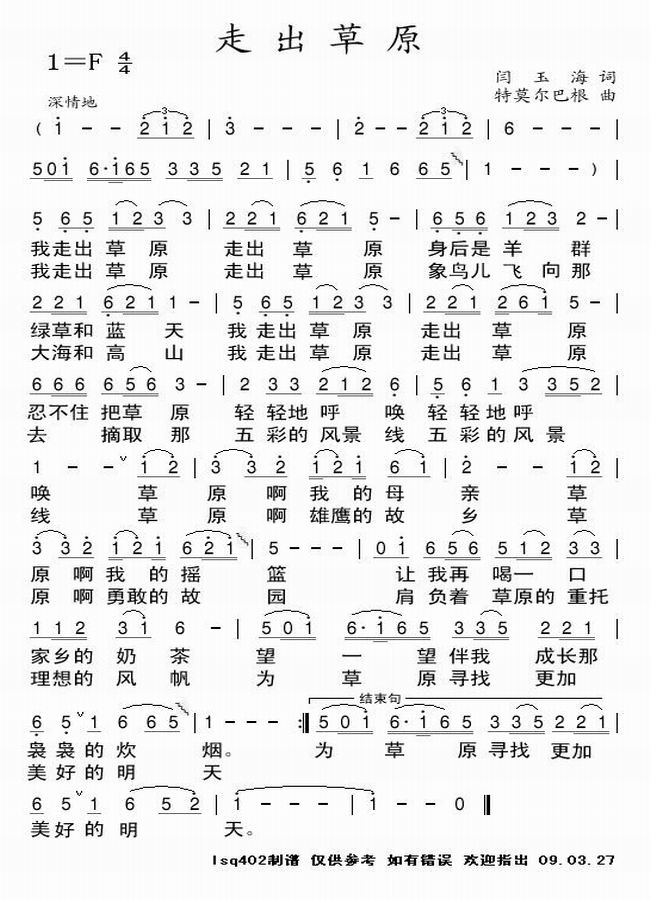 走出草原
1=F 4/4
闫玉海 词
特莫尔巴根 曲
深情地
( 1 - - 2 1 2 | 3 - - - | 2 - - 2 1 2 | 6 - - - |
5 0 1 6·1 6 5 3 3 5 2 1 | 5 6 1 6 6 5 | 1 - - - )
5 6 5 1 2 3 3 | 2 2 1 6 2 1 5 - | 6 5 6 1 2 3 2 - |
我走出 草 原 走出 草 原 身后是 羊 群
我走出 草 原 走出 草 原 象鸟儿 飞 向 那
2 2 1 6 2 1 1 - | 5 6 5 1 2 3 3 | 2 2 1 2 6 1 5 - |
绿草和 蓝 天 我 走出 草 原 走出 草 原
大海和 高 山 我 走出 草 原 走出 草 原
6 6 6 6 5 6 3 - | 2 3 3 2 1 2 6 | 5 6 1 3 3 5 2 |
忍不住 把草 原 轻 轻地 呼 唤 轻 轻地 呼
去 摘取 那 五 彩的 风景 线 五 彩的 风 景
1 - - ˅ 1 2 | 3 3 2 1 2 1 6 1 | 2 - - 1 2 |
唤 草 原 啊 我 的 母 亲 草
线 草 原 啊 雄鹰的 故 乡 草
3 3 2 1 2 1 6 2 1 | 5 - - - | 0 1 6 5 6 5 1 2 3 3 |
原 啊 我 的 摇 篮 让 我再 喝一 口
原 啊 勇敢的 故 园 肩 负着 草原的 重托
1 1 2 3 1 6 - | 5 0 1 6·1 6 5 3 3 5 2 1 |
家乡的 奶 茶 望 一 望 伴我 成长那
理想的 风 帆 为 草 原 寻找 更加
结束句
6 5 ˅ 1 6 6 5 | 1 - - - :‖ 5 0 1 6·1 6 5 3 3 5 2 2 1 |
袅 袅 的 炊 烟。 为 草 原 寻找 更加
美 好 的 明 天
6 5 ˅ 1 6 6 5 2 | 1 - - - | 1 - - 0 ‖
美 好 的 明 天。
lsq402制谱 仅供参考 如有错误 欢迎指出 09.03.27